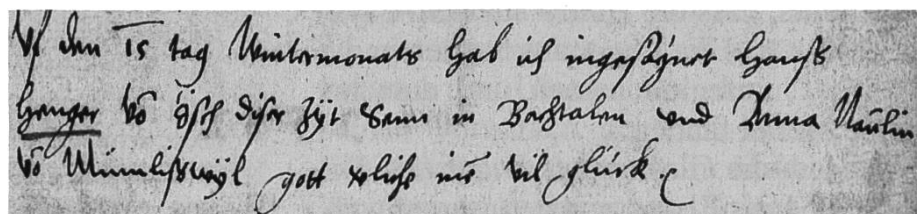 Vf den 15 tag Wintermonats hab ich ingesägnet Hanss
Henger vō ösch diser zyt Senn in Bachtalen vnd Anna Näūlin
vō Mümliswyl gott verliche inē vil glück.